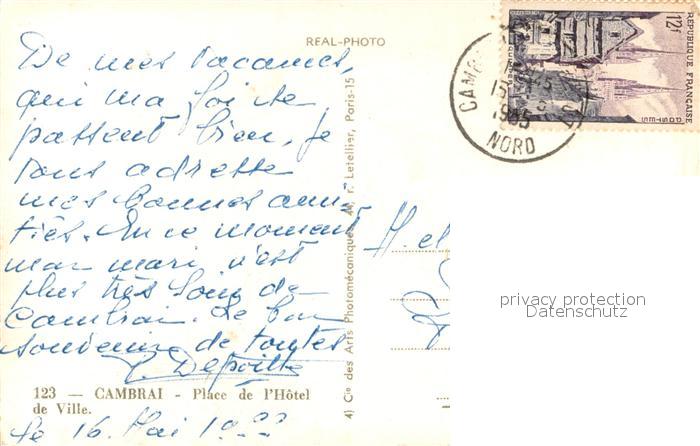 REAL-PHOTO
De mes vacances,
qui ma foi se
passent bien, je
vous adresse
mes bonnes ami-
tiés. En ce moment
mon mari n'est
plus très loin de
Cambrai. Le bon
souvenir de toutes
123 — CAMBRAI - Place de l'Hôtel
de Ville.
le 16 Mai
4) Cie des Arts Photomécaniques, 44, r. Letellier, Paris-15
M. et
CAMB
15
NORD
12f
RÉPUBLIQUE FRANÇAISE
POSTES
privacy protection
Datenschutz